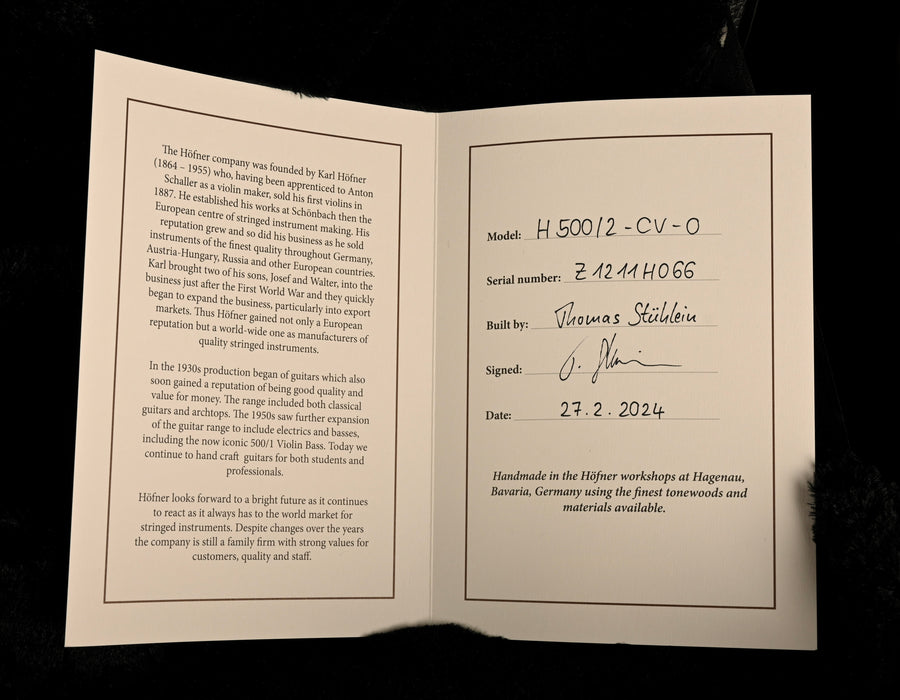 The Höfner company was founded by Karl Höfner
(1864 – 1955) who, having been apprenticed to Anton
Schaller as a violin maker, sold his first violins in
1887. He established his works at Schönbach then the
European centre of stringed instrument making. His
reputation grew and so did his business as he sold
instruments of the finest quality throughout Germany,
Austria-Hungary, Russia and other European countries.
Karl brought two of his sons, Josef and Walter, into the
business just after the First World War and they quickly
began to expand the business, particularly into export
markets. Thus Höfner gained not only a European
reputation but a world-wide one as manufacturers of
quality stringed instruments.
In the 1930s production began of guitars which also
soon gained a reputation of being good quality and
value for money. The range included both classical
guitars and archtops. The 1950s saw further expansion
of the guitar range to include electrics and basses,
including the now iconic 500/1 Violin Bass. Today we
continue to hand craft guitars for both students and
professionals.
Höfner looks forward to a bright future as it continues
to react as it always has to the world market for
stringed instruments. Despite changes over the years
the company is still a family firm with strong values for
customers, quality and staff.
Model: H 500/2 - CV - O
Serial number: Z1211H066
Built by: Thomas Stühlein
Signed:
Date: 27.2.2024
Handmade in the Höfner workshops at Hagenau,
Bavaria, Germany using the finest tonewoods and
materials available.